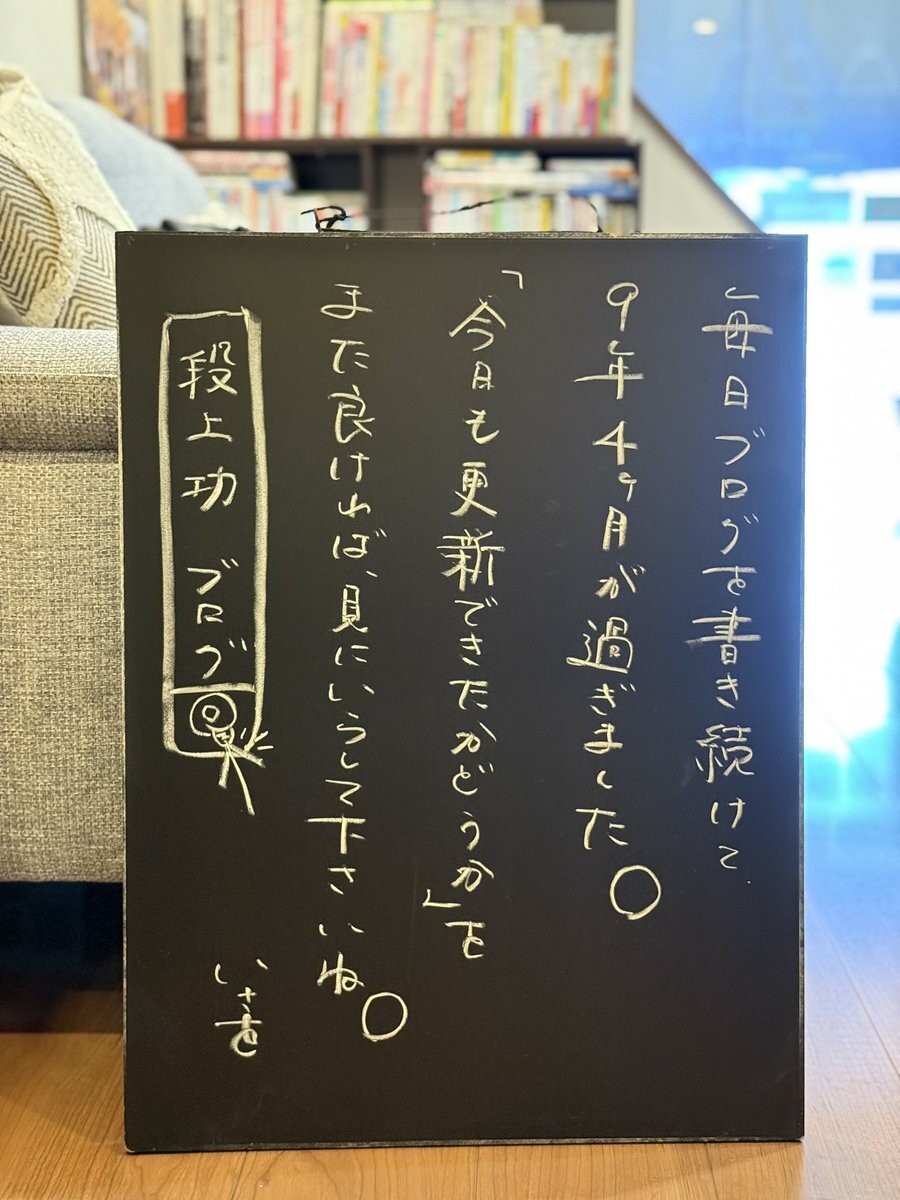 毎日ブログを書き続けて
9年4ヶ月が過ぎました。
「今日も更新できたかどうか」を
また良ければ、見にいらして下さいね。
段上功 ブログ
いさを